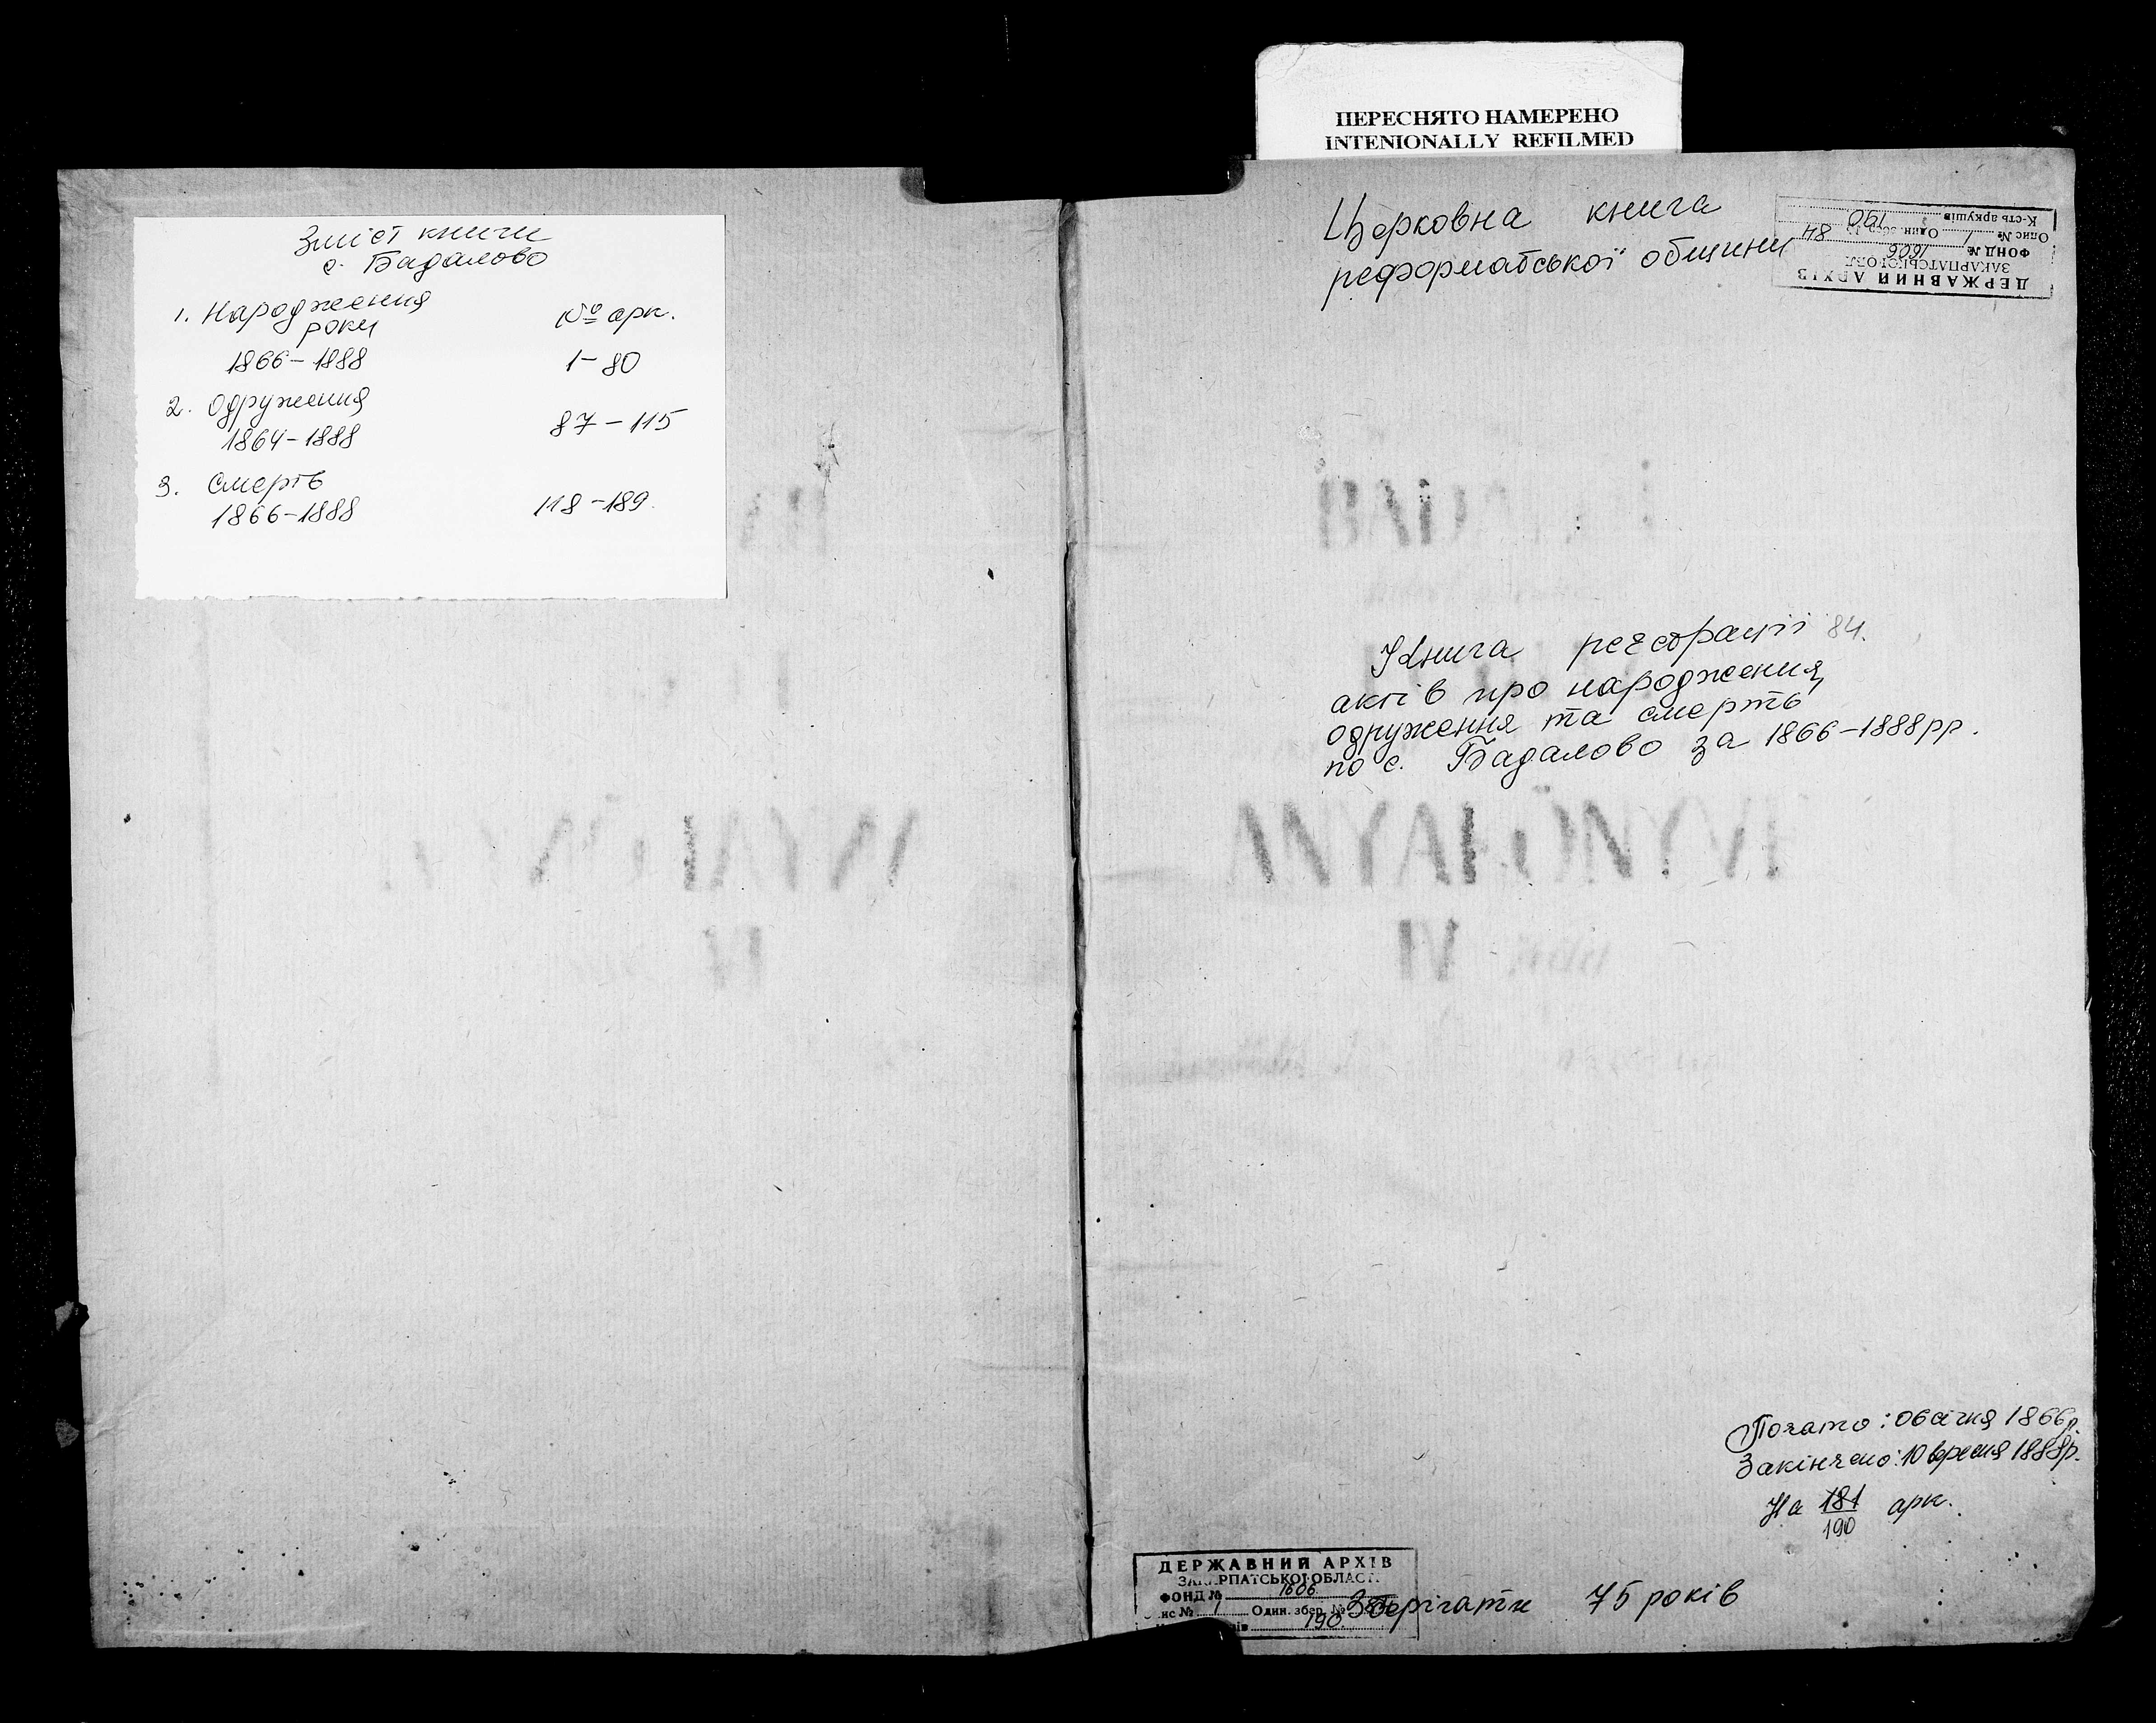 ПЕРЕСНЯТО НАМЕРЕНО
INTENIONALLY REFILMED
Зміст книги
с. Бадалово
1. Народження № арк.
роки
1866-1888 1-80
2. Одруження
1864-1888 87-115
3. Смерть
1866-1888 118-189.
Церковна книга
реформатської общини
ДЕРЖАВНИЙ АРХІВ
ЗАКАРПАТСЬКОЇ ОБЛ.
ФОНД № 1606
Опис № 1 Один. зб. 84
К-сть аркушів 190
BADA
Книга реєстрації 84.
актів про народження,
одруження та смерть
по с. Бадалово за 1866-1888рр.
ANYAKÖNYVE
IV
Почато: 06 січня 1866р.
Закінчено: 10 вересня 1888р.
На 181 арк.
190
ДЕРЖАВНИЙ АРХІВ
ЗАКАРПАТСЬКОЇ ОБЛАСТ.
ФОНД № 1606
ис № 1 Один. збер. № 84
190
Зберігати 75 років